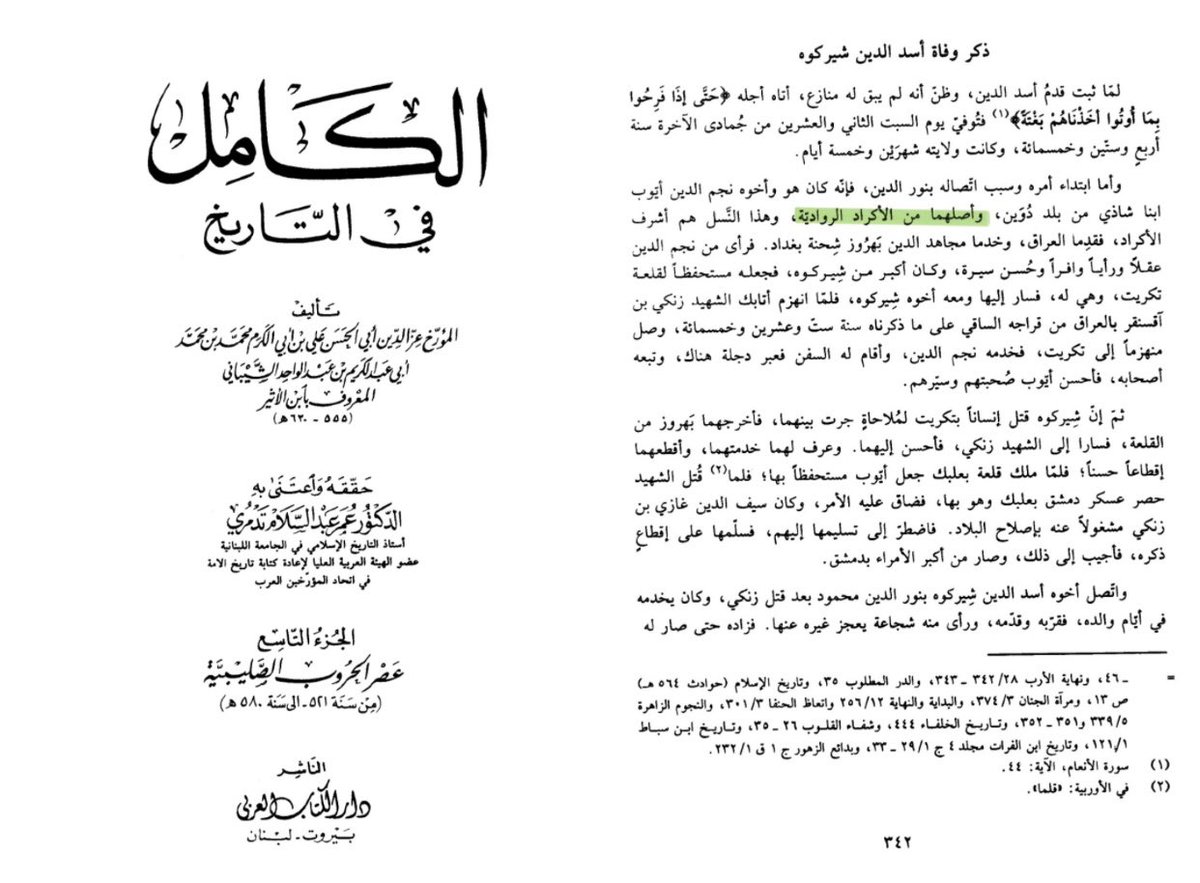 الكامل
في التاريخ
تأليف
المؤرخ عز الدين أبي الحسن علي بن أبي الكرم محمد بن محمد
أبي عبد الكريم بن عبد الواحد الشيباني
المعروف بابن الأثير
(٥٥٥ - ٦٣٠ هـ)
حققه واعتنى به
الدكتور عمر عبد السلام تدمري
أستاذ التاريخ الإسلامي في الجامعة اللبنانية
عضو الهيئة العربية العليا لإعادة كتابة تاريخ الامة
في اتحاد المؤرّخين العرب
الجزء التاسع
عصر الحروب الصليبية
(من سنة ٥٢١ - الى سنة ٥٨٠ هـ)
الناشر
دار الكتاب العربي
بيروت - لبنان
ذكر وفاة أسد الدين شيركوه
لمّا ثبت قدمُ أسد الدين، وظنّ أنه لم يبق له منازع، أتاه أجله ﴿حَتَّى إذَا فَرِحُوا
بِمَا أُوتُوا أخَذْنَاهُمْ بَغْتَةً﴾(١) فتُوفيّ يوم السبت الثاني والعشرين من جُمادى الآخرة سنة
أربعٍ وستّين وخمسمائة، وكانت ولايته شهرَيْن وخمسة أيام.
وأما ابتداء أمره وسبب اتّصاله بنور الدين، فإنّه كان هو وأخوه نجم الدين أيّوب
ابنا شاذي من بلد دُوَين، وأصلهما من الأكراد الرواديّة، وهذا النَّسل هم أشرف
الأكراد، فقدِما العراق، وخدما مجاهد الدين بَهرُوز شِحنة بغداد. فرأى من نجم الدين
عقلاً ورأياً وافراً وحُسن سيرة، وكان أكبر من شِيركوه، فجعله مستحفظاً لقلعة
تكريت، وهي له، فسار إليها ومعه أخوه شِيركوه، فلمّا انهزم أتابك الشهيد زنكي بن
آقسنقر بالعراق من قراجه الساقي على ما ذكرناه سنة ستّ وعشرين وخمسمائة، وصل
منهزماً إلى تكريت، فخدمه نجم الدين، وأقام له السفن فعبر دجلة هناك، وتبعه
أصحابه، فأحسن أيّوب صُحبتهم وسيّرهم.
ثمّ إنّ شِيركوه قتل إنساناً بتكريت لمُلاحاةٍ جرت بينهما، فأخرجهما بَهروز من
القلعة، فسارا إلى الشهيد زنكي، فأحسن إليهما. وعرف لهما خدمتهما، وأقطعهما
إقطاعاً حسناً؛ فلمّا ملك قلعة بعلبك جعل أيّوب مستحفظاً بها؛ فلما(٢) قُتل الشهيد
حصر عسكر دمشق بعلبك وهو بها، فضاق عليه الأمر، وكان سيف الدين غازي بن
زنكي مشغولاً عنه بإصلاح البلاد. فاضطرّ إلى تسليمها إليهم، فسلّمها على إقطاعٍ
ذكره، فأجيب إلى ذلك، وصار من أكبر الأمراء بدمشق.
واتّصل أخوه أسد الدين شِيركوه بنور الدين محمود بعد قتل زنكي، وكان يخدمه
في أيّام والده، فقرّبه وقدّمه، ورأى منه شجاعة يعجز غيره عنها. فزاده حتى صار له
= ـ ٤٦، ونهاية الأرب ٢٨/ ٣٤٢ ـ ٣٤٣، والدر المطلوب ٣٥، وتاريخ الإسلام (حوادث ٥٦٤ هـ)
ص ١٣، ومرآة الجنان ٣/ ٣٧٤، والبداية والنهاية ١٢/ ٢٥٦ واتعاظ الحنفا ٣/ ٣٠١، والنجوم الزاهرة
٥/ ٣٣٩ و٣٥١ ـ ٣٥٢، وتاريخ الخلفاء ٤٤٤، وشفاء القلوب ٢٦ ـ ٣٥، وتاريخ ابن سباط
١/ ١٢١، وتاريخ ابن الفرات مجلد ٤ ج ١/ ٢٩ ـ ٣٣، وبدائع الزهور ج ١ ق ١/ ٢٣٢.
(١) سورة الأنعام، الآية: ٤٤.
(٢) في الأوربية: «قلما».
٣٤٢